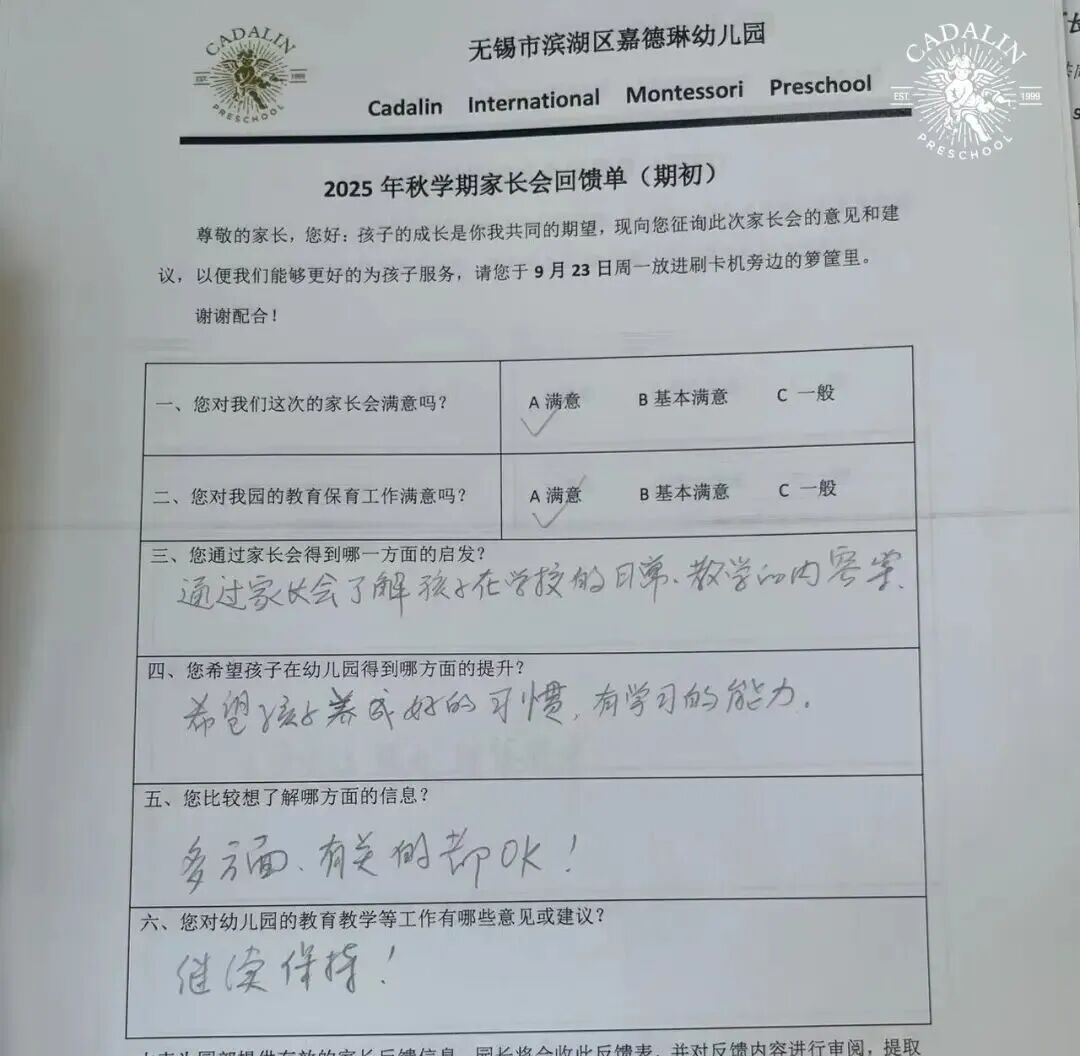 CADALIN
EST.
1999
PRESCHOOL
无锡市滨湖区嘉德琳幼儿园
Cadalin International Montessori Preschool
CADALIN
EST.
1999
PRESCHOOL
2025年秋学期家长会回馈单（期初）
尊敬的家长，您好：孩子的成长是你我共同的期望，现向您征询此次家长会的意见和建
议，以便我们能够更好的为孩子服务，请您于9月23日周一放进刷卡机旁边的箩筐里。
谢谢配合！
一、您对我们这次的家长会满意吗？ A 满意 B 基本满意 C 一般
二、您对我园的教育保育工作满意吗？ A 满意 B 基本满意 C 一般
三、您通过家长会得到哪一方面的启发？
通过家长会了解孩子在学校的日常、教学的内容等.
四、您希望孩子在幼儿园得到哪方面的提升？
希望孩子养成好的习惯，有学习的能力.
五、您比较想了解哪方面的信息？
多方面、有关的都OK！
六、您对幼儿园的教育教学等工作有哪些意见或建议？
继续保持！